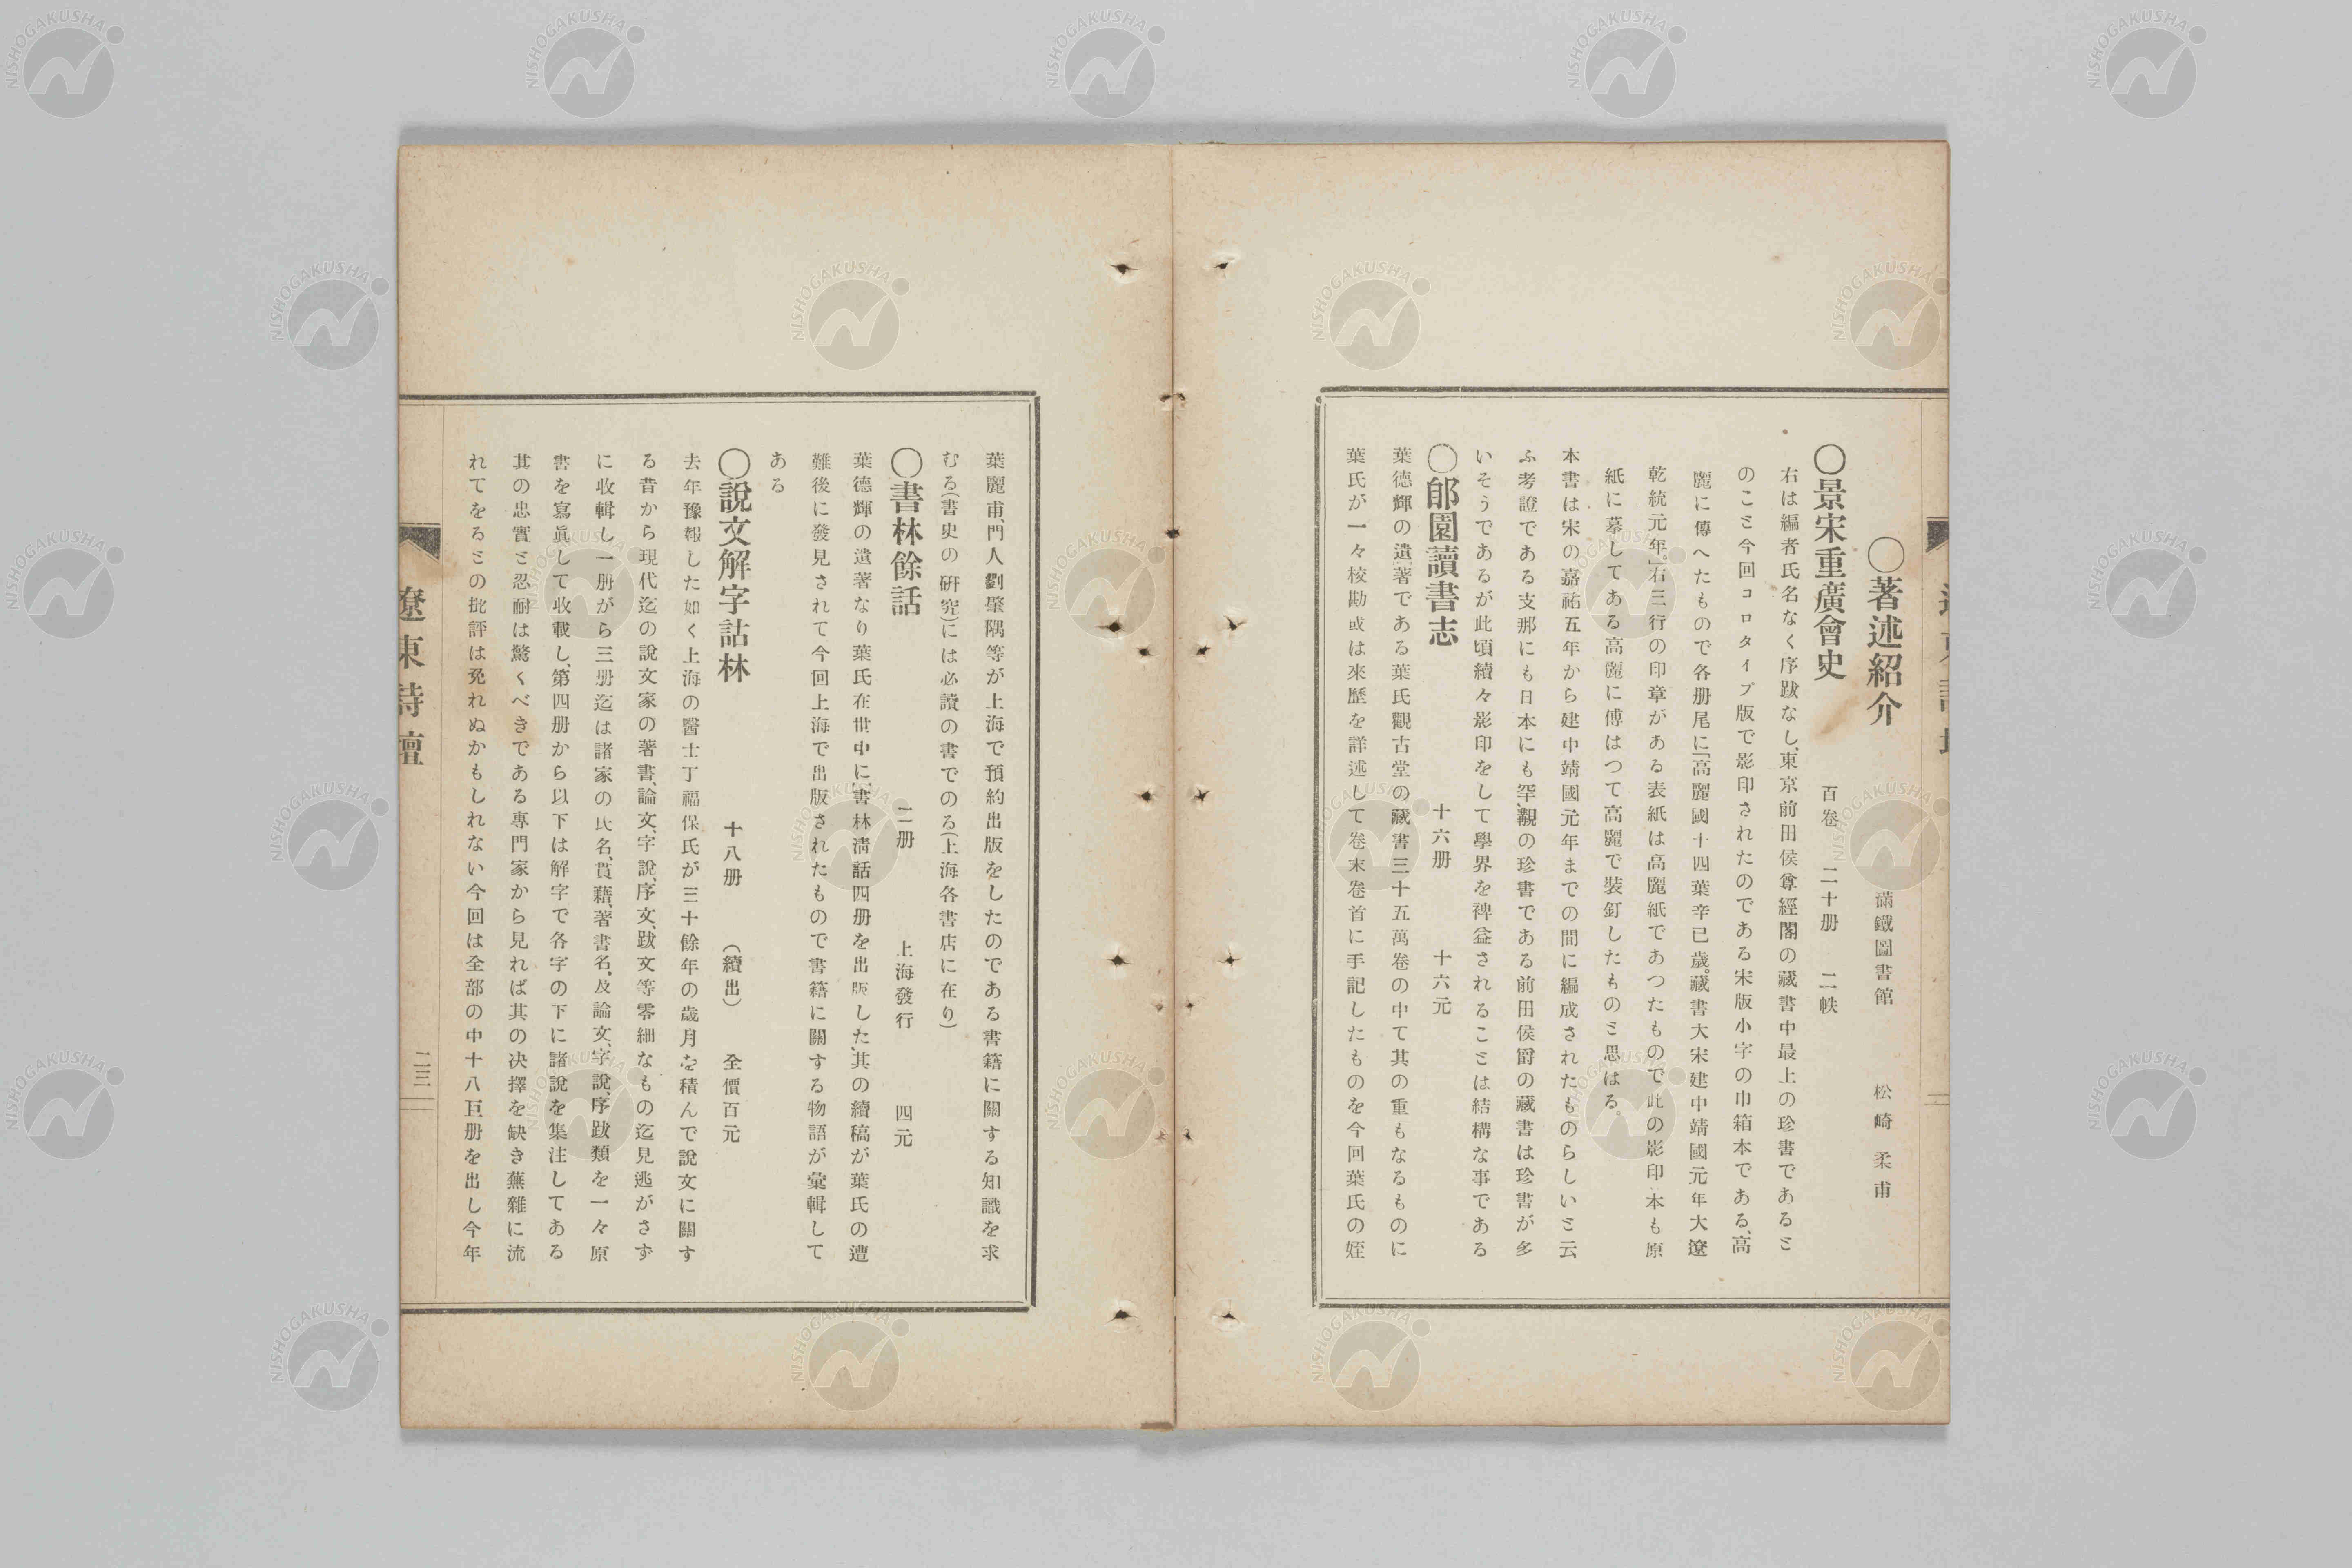 〇著述紹介 滿鐵圖書館 松崎柔甫
〇景宋重廣會史 百卷 二十册 二帙
右は編者氏名なく序跋なし、東京前田侯尊經閣の藏書中最上の珍書であるミ
のこミ今回コロタイプ版で影印されたのである宋版小字の巾箱本である、高
麗に傳へたもので各册尾に「高麗國十四葉辛已歲。藏書大宋建中靖國元年大遼
乾統元年。」右三行の印章がある表紙は高麗紙であつたもので此の影印本も原
紙に摹してある高麗に傅はつて高麗で裝釘したものミ思はる。
本書は宋の嘉祐五年から建中靖國元年までの間に編成されたものらしいミ云
ふ考證である支那にも日本にも罕覯の珍書である前田侯爵の藏書は珍書が多
いそうであるが此頃續々影印をして學界を裨益されるこミは結構な事である
〇郋園讀書志 十六册 十六元
葉德輝の遺著である葉氏觀古堂の藏書三十五萬卷の中て其の重もなるものに
葉氏が一々校勘或は來歷を詳述して卷末卷首に手記したものを今回葉氏の姪
葉麗甫、門人劉肇隅等が上海で預約出版をしたのである書籍に關する知識を求
むる(書史の硏究)には必讀の書でのる(上海各書店に在り)
〇書林餘話 二册 上海發行 四元
葉德輝の遺著なり葉氏在世中に「書林淸話四册を出版した、其の續稿が葉氏の遭
難後に發見されて今回上海で出版されたもので書籍に關する物語が彙輯して
ある
〇說文解字詁林 十八册 (續出) 全價百元
去年豫報した如く上海の醫士丁福保氏が三十餘年の歲月を積んで說文に關す
る昔から現代迄の說文家の著書、論文、字說、序文、跋文等零細なもの迄見逃がさず
に收輯し一册がら三册迄は諸家の氏名、貫藉、著書名、及論文、字說、序跋類を一々原
書を寫眞して收載し、第四册から以下は解字で各字の下に諸說を集注してある
其の忠實ミ忍耐は驚くべきである專門家から見れば其の決擇を缺き蕪雜に流
れてをるミの批評は免れぬかもしれない今回は全部の中十八巨册を出し今年
遼東詩壇 二三
NISHOGAKUSHA